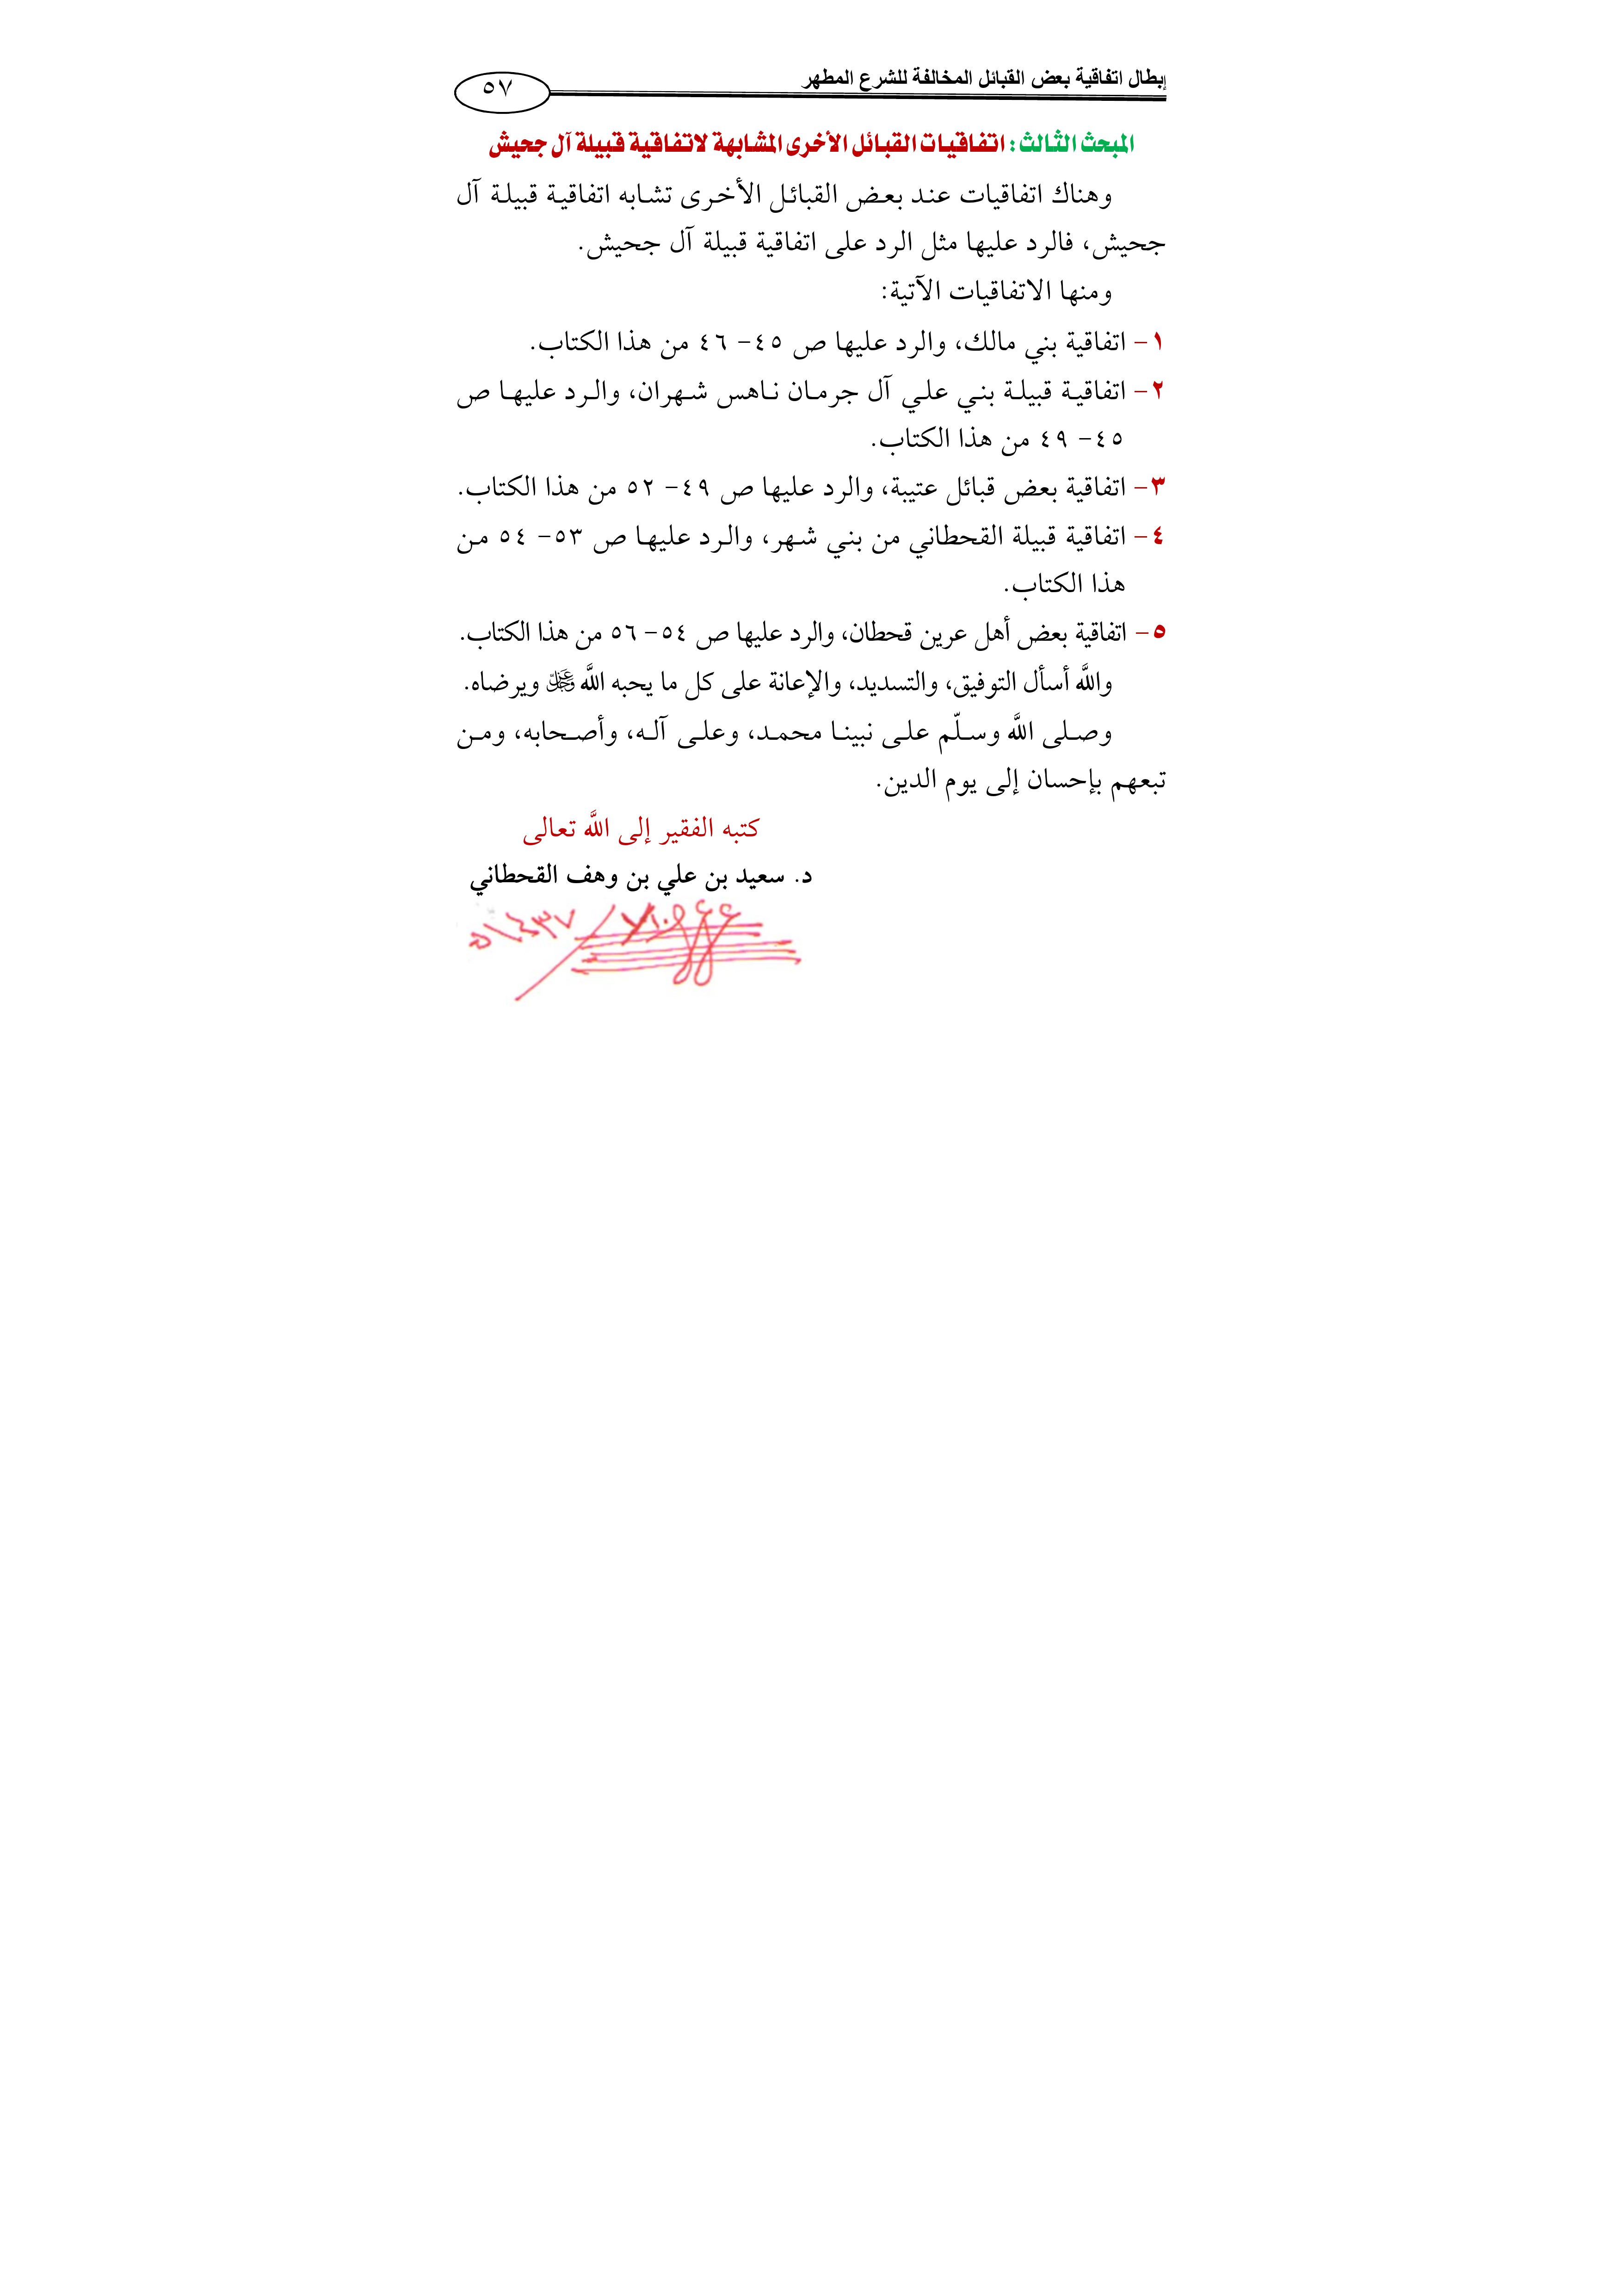 إبطال اتفاقية بعض القبائل المخالفة للشرع المطهر
٥٧
المبحث الثالث: اتفاقيات القبائل الأخرى المشابهة لاتفاقية قبيلة آل جحيش
وهناك اتفاقيات عند بعض القبائل الأخرى تشابه اتفاقية قبيلة آل
جحيش، فالرد عليها مثل الرد على اتفاقية قبيلة آل جحيش.
ومنها الاتفاقيات الآتية:
١- اتفاقية بني مالك، والرد عليها ص ٤٥- ٤٦ من هذا الكتاب.
٢- اتفاقية قبيلة بني علي آل جرمان ناهس شهران، والرد عليها ص
٤٥- ٤٩ من هذا الكتاب.
٣- اتفاقية بعض قبائل عتيبة، والرد عليها ص ٤٩- ٥٢ من هذا الكتاب.
٤- اتفاقية قبيلة القحطاني من بني شهر، والرد عليها ص ٥٣- ٥٤ من
هذا الكتاب.
٥- اتفاقية بعض أهل عرين قحطان، والرد عليها ص ٥٤- ٥٦ من هذا الكتاب.
واللَّه أسأل التوفيق، والتسديد، والإعانة على كل ما يحبه اللَّه عز وجل ويرضاه.
وصلى اللَّه وسلّم على نبينا محمد، وعلى آله، وأصحابه، ومن
تبعهم بإحسان إلى يوم الدين.
كتبه الفقير إلى اللَّه تعالى
د. سعيد بن علي بن وهف القحطاني